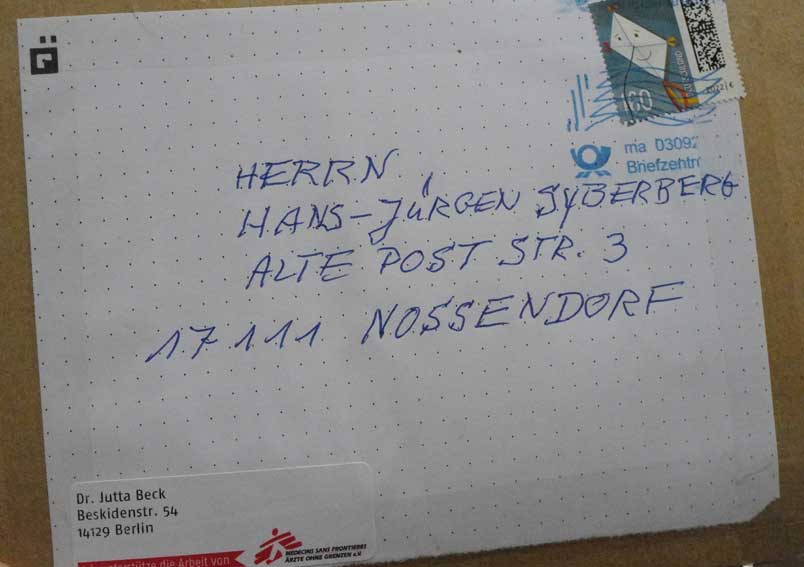 Q̈
160
ma 0309
Briefzentr
HERRN
HANS-JÜRGEN SYBERBERG
ALTE POST STR. 3
17111 NOSSENDORF
Dr. Jutta Beck
Beskidenstr. 54
14129 Berlin
die Arbeit von
MEDECINS SANS FRONTIERES
ÄRZTE OHNE GRENZEN e.V.